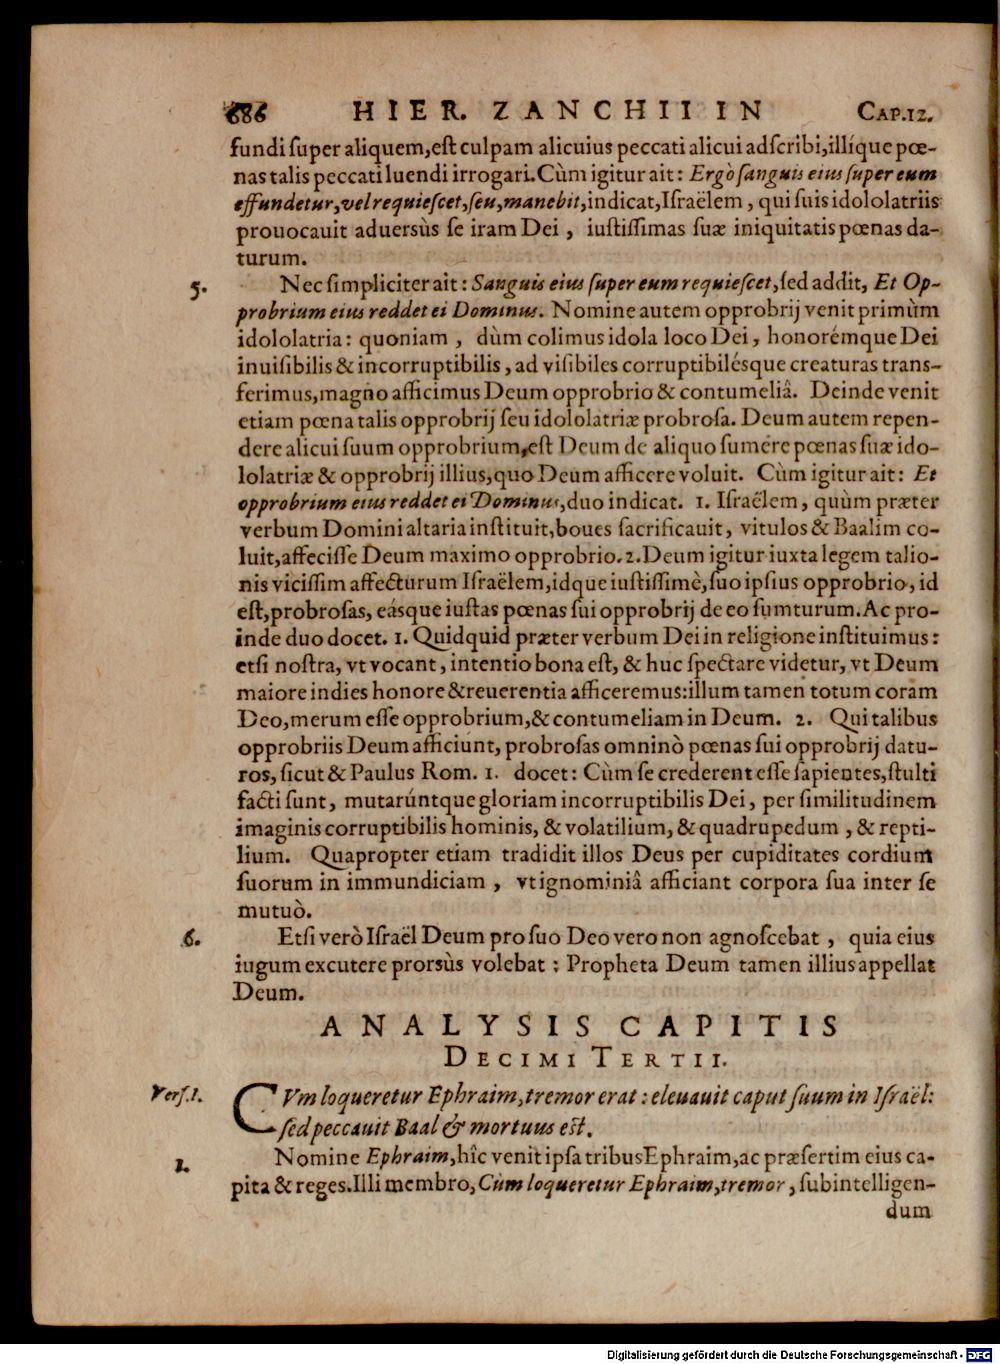 686 HIER. ZANCHII IN CAP.12.
fundi super aliquem,est culpam alicuius peccati alicui adscribi,illíque pœ-
nas talis peccati luendi irrogari.Cùm igitur ait: Ergò sanguis eius super eum
effundetur,vel requiescet,seu,manebit,indicat,Israëlem, qui suis idololatriis
prouocauit aduersùs se iram Dei, iustissimas suæ iniquitatis pœnas da-
turum.
5. Nec simpliciter ait: Sanguis eius super eum requiescet,sed addit, Et Op-
probrium eius reddet ei Dominus. Nomine autem opprobrij venit primùm
idololatria: quoniam, dùm colimus idola loco Dei, honorémque Dei
inuisibilis & incorruptibilis, ad visibiles corruptibilésque creaturas trans-
ferimus,magno afficimus Deum opprobrio & contumeliâ. Deinde venit
etiam pœna talis opprobrij seu idololatriæ probrosa. Deum autem repen-
dere alicui suum opprobrium,est Deum de aliquo sumere pœnas suæ ido-
lolatriæ & opprobrij illius,quo Deum afficere voluit. Cùm igitur ait: Et
opprobrium eius reddet ei Dominus,duo indicat. 1. Israëlem, quùm præter
verbum Domini altaria instituit,boues sacrificauit, vitulos & Baalim co-
luit,affecisse Deum maximo opprobrio.2.Deum igitur iuxta legem talio-
nis vicissim affecturum Israëlem,idque iustissimè,suo ipsius opprobrio, id
est,probrosas, eásque iustas pœnas sui opprobrij de eo sumturum.Ac pro-
inde duo docet. 1. Quidquid præter verbum Dei in religione instituimus:
etsi nostra, vt vocant, intentio bona est, & huc spectare videtur, vt Deum
maiore indies honore & reuerentia afficeremus:illum tamen totum coram
Deo,merum esse opprobrium,& contumeliam in Deum. 2. Qui talibus
opprobriis Deum afficiunt, probrosas omninò pœnas sui opprobrij datu-
ros, sicut & Paulus Rom. 1. docet: Cùm se crederent esse sapientes,stulti
facti sunt, mutarúntque gloriam incorruptibilis Dei, per similitudinem
imaginis corruptibilis hominis, & volatilium, & quadrupedum, & repti-
lium. Quapropter etiam tradidit illos Deus per cupiditates cordium
suorum in immundiciam, vt ignominiâ afficiant corpora sua inter se
mutuò.
6. Etsi verò Israël Deum pro suo Deo vero non agnoscebat, quia eius
iugum excutere prorsùs volebat: Propheta Deum tamen illius appellat
Deum.
ANALYSIS CAPITIS
DECIMI TERTII.
Vers.1. CVm loqueretur Ephraim,tremor erat: eleuauit caput suum in Israël:
sed peccauit Baal & mortuus est.
1. Nomine Ephraim,hîc venit ipsa tribus Ephraim,ac præsertim eius ca-
pita & reges.Illi membro,Cùm loqueretur Ephraim,tremor, subintelligen-
dum
Digitalisierung gefördert durch die Deutsche Forschungsgemeinschaft - DFG